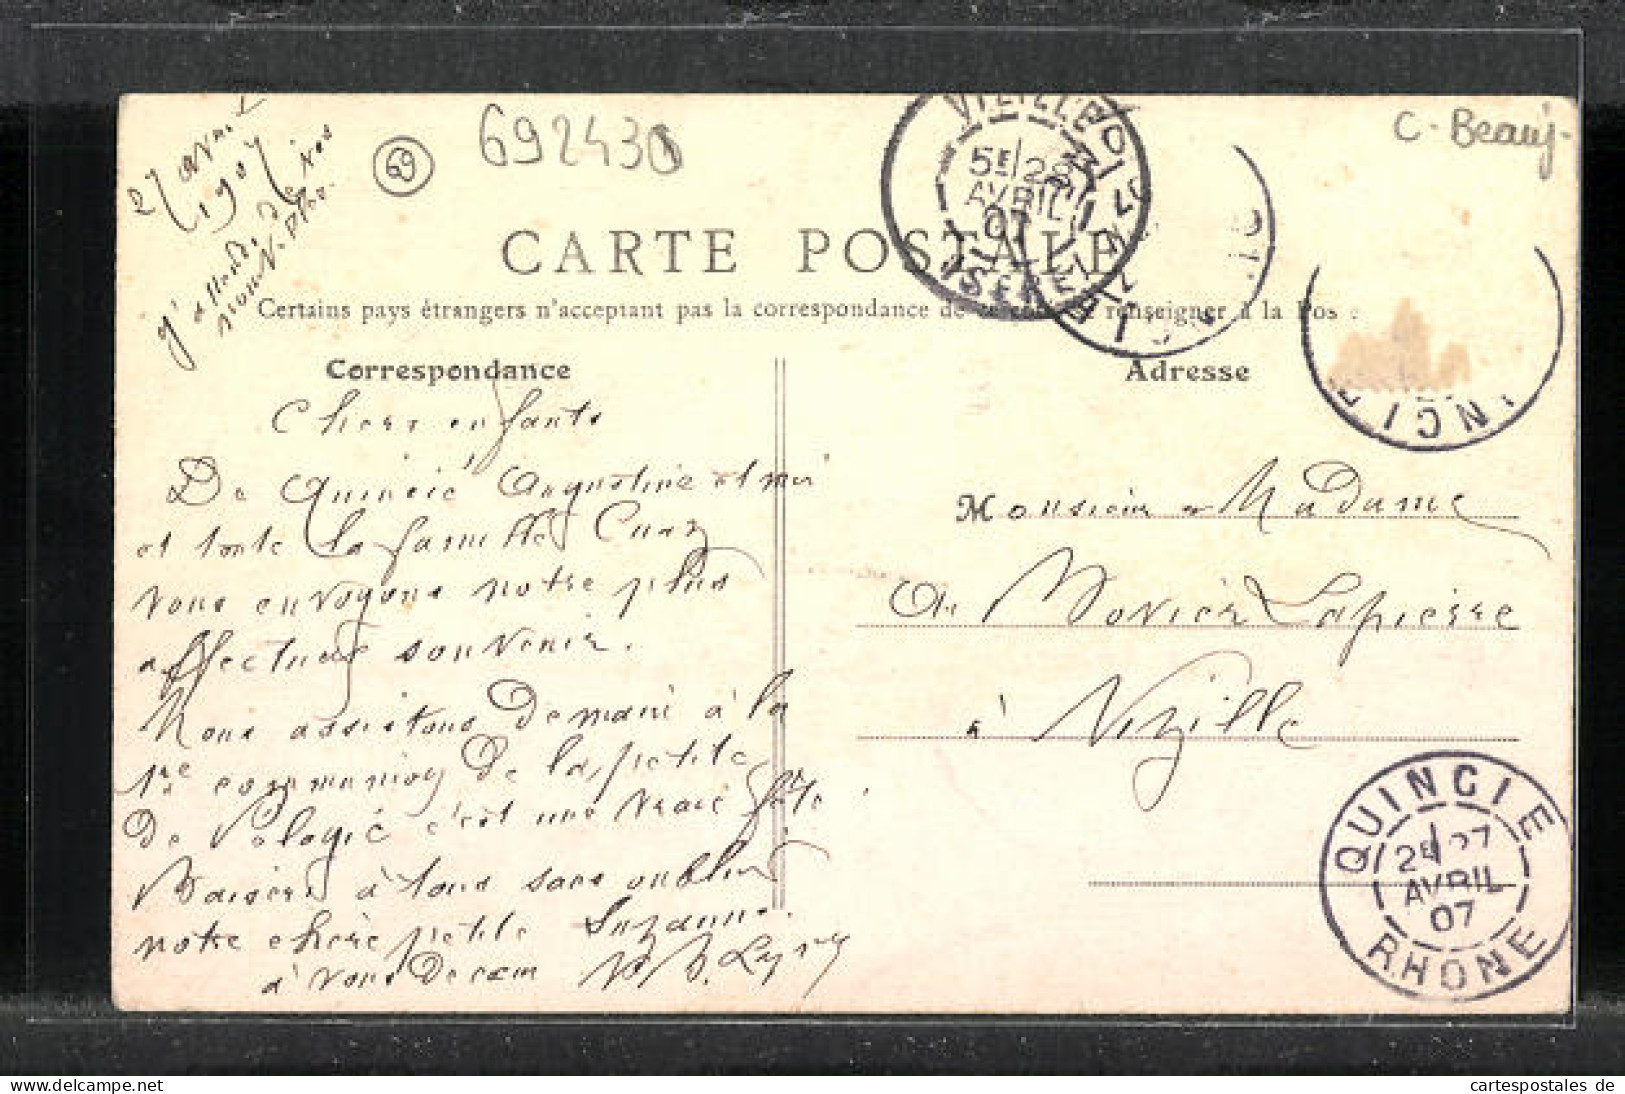 27 avril
1907
j'attends de vos
nouvelles
69
692430
C - Beauj -
VIZILLE
5E 28
AVRIL
07
ISERE
CARTE POSTALE
Certains pays étrangers n'acceptant pas la correspondance de ce côté, se renseigner à la Poste
Correspondance
Chers enfants
De Quincié Augustine et moi
et toute la famille
vous envoyons notre plus
affectueux souvenir.
Nous assistons demain à la
1re communion de la petite
de Pelagié c'est une vraie fête
Baisers à tous sans oublier
notre chère petite Suzanne.
à vous de cœur
Adresse
Monsieur et Madame
Bovier Lapierre
à Vizille
QUINCIE
2E 27
AVRIL
07
RHONE
cartespostales de